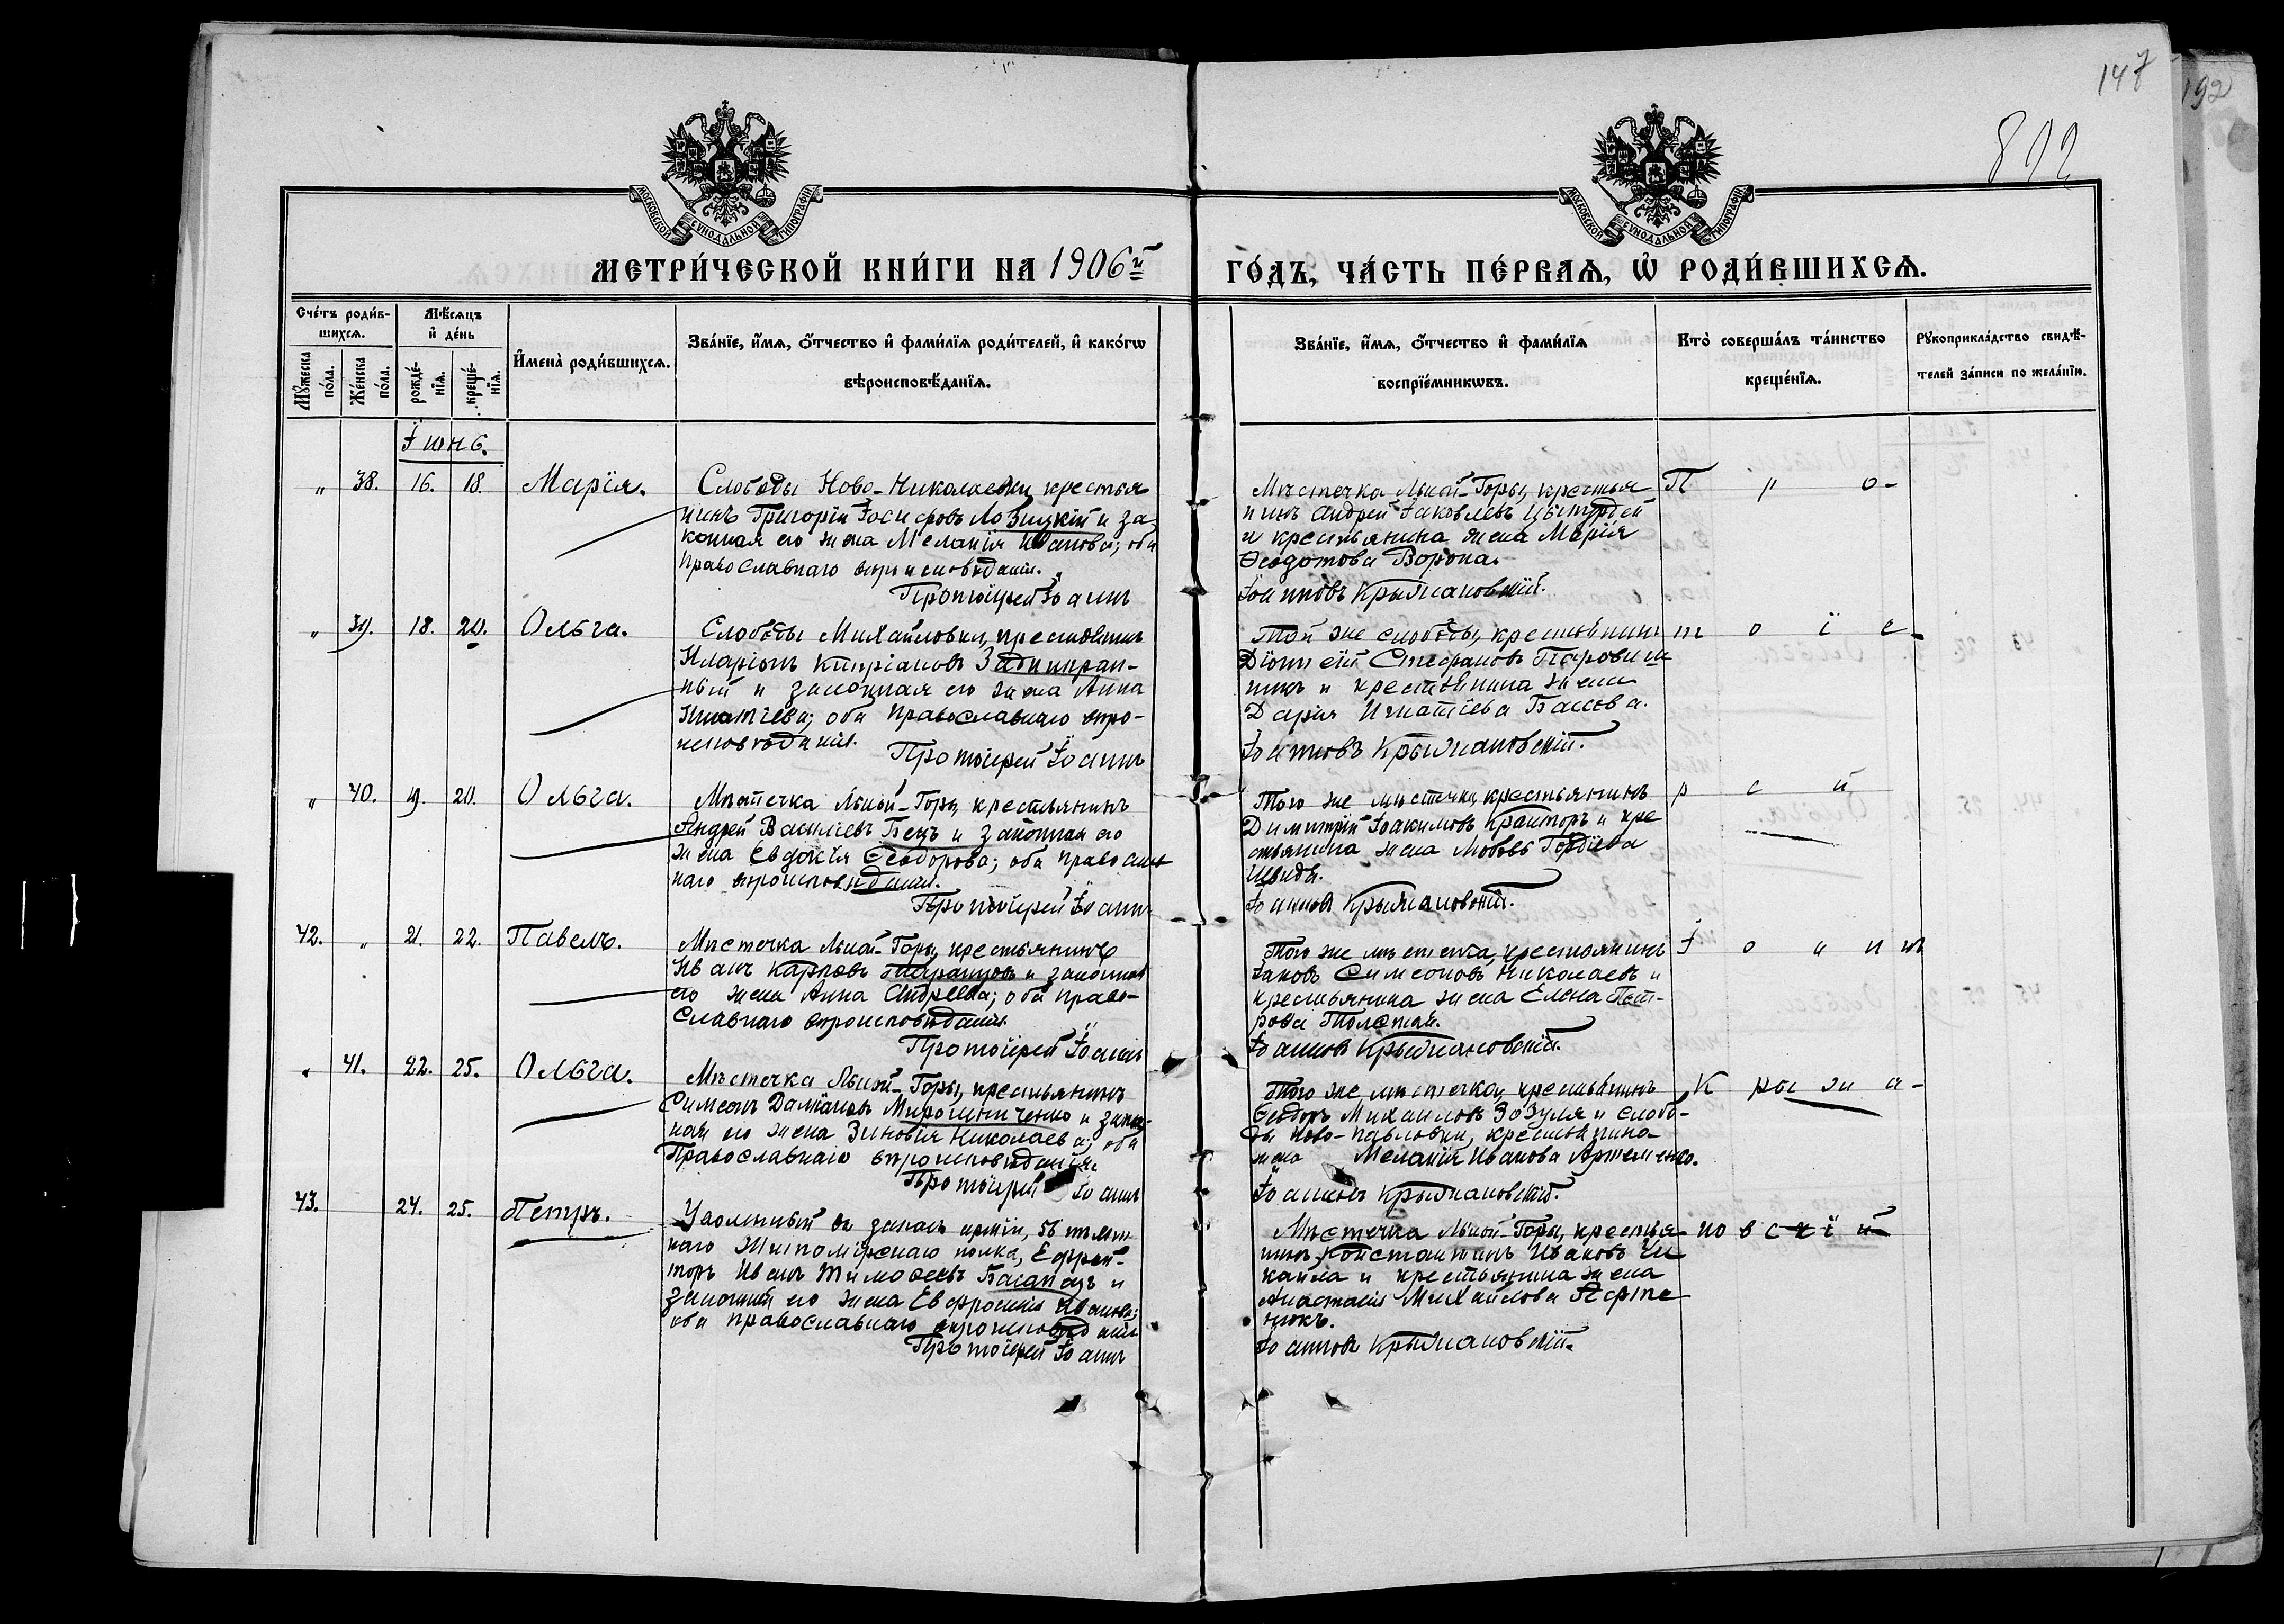 147
192
802
МОСКОВСКОЙ СѴНОДАЛЬНОЙ ТИПОГРАФІИ
МОСКОВСКОЙ СѴНОДАЛЬНОЙ ТИПОГРАФІИ
МЕТРИ́ЧЕСКОЙ КНИ́ГИ НА 1906й
ГО́ДЪ, ЧА́СТЬ ПЕ́РВАѦ, Ѽ РОДИ́ВШИХСѦ.
Сче́тъ роди́в-
шихсѧ.
Мꙋжеска по́ла.
Же́нска по́ла.
Мѣ́сяцъ
и҆ де́нь
рожде́-
нїѧ.
креще́-
нїѧ.
И҆мена̀ роди́вшихсѧ.
Зва́нїе, и҆́мѧ, ѻ҆́тчество и҆ фами́лїѧ роди́телей, и҆ како́гѡ
вѣроисповѣ́данїѧ.
Зва́нїе, и҆́мѧ, ѻ҆́тчество и҆ фами́лїѧ
воспрїе́мникѡвъ.
Кто̀ соверша́лъ та́инство
креще́нїѧ.
Рꙋкоприкла́дство свидѣ́-
телей за́писи по жела́нїю.
Іюнь.
" 38. 16. 18. Марія.
Слободы Ново-Николаевки крестья
нинъ Григорій Іосифовъ Лозицкій и за
конная его жена Меланія Иванова; оба
православнаго вѣроисповѣданія.
Протоіерей Іоаннъ
Мѣстечка Лысой-Горы, крестья
нинъ Андрей Іаковлевъ
и крестьянина жена Марія
Ѳеодотова Ворона.
Іоанновъ Крыжановскій.
П р о-
" 39. 18. 20. Ольга.
Слободы Михайловки, крестьянинъ
Иларіонъ Кипріановъ
ный и законная его жена Анна
Игнатіева; оба православнаго вѣро-
исповѣданія.
Протоіерей Іоаннъ
Той же слободы, крестьянинъ
Діонисій Стефановъ
никъ и крестьянина жена
Дарія Игнатіева Басова.
Іоанновъ Крыжановскій.
т о і е-
" 40. 19. 20. Ольга.
Мѣстечка Лысой-Горы, крестьянинъ
Андрей Василіевъ Бецъ и законная его
жена Евдокія Ѳеодорова; оба православ
наго вѣроисповѣданія.
Протоіерей Іоаннъ
Того же мѣстечка, крестьянинъ
Димитрій Іоакимовъ Кранторъ и кре
стьянина жена Любовь Гордіева
Швида.
Іоанновъ Крыжановскій.
р е й
42. " 21. 22. Павелъ.
Мѣстечка Лысой-Горы, крестьянинъ
Иванъ Карповъ и законная
его жена Анна Андреева; оба право-
славнаго вѣроисповѣданія.
Протоіерей Іоаннъ
Того же мѣстечка, крестьянинъ
Іаковъ Симеоновъ Николаевъ и
крестьянина жена Елена Пет-
рова Толстая.
Іоанновъ Крыжановскій.
І о а н нъ
" 41. 22. 25. Ольга.
Мѣстечка Лысой-Горы, крестьянинъ
Симеонъ Даміановъ Мирошниченко и закон-
ная его жена Зиновія Николаева; оба
Православнаго вѣроисповѣданія.
Протоіерей Іоаннъ
Того же мѣстечка, крестьянинъ
Ѳеодоръ Михаиловъ Зозуля и слобо-
ды Ново-Павловки, крестьянина
жена Меланія Иванова Артеменко.
Іоанновъ Крыжановскій.
К ры ж а-
43. 24. 25. Петръ.
Уволенный въ запасъ арміи, 56 пѣхот
наго Житомірскаго полка, Ефрей-
торъ Иванъ Тимоѳеевъ и
законная его жена Евфросинія Иванова;
оба православнаго вѣроисповѣданія
Протоіерей Іоаннъ
Мѣстечка Лысой-Горы, крестья
нинъ Константинъ Ивановъ Чи
кайла и крестьянина жена
Анастасія Михайлова Парте
нюкъ.
Іоанновъ Крыжановскій.
но в с к і й